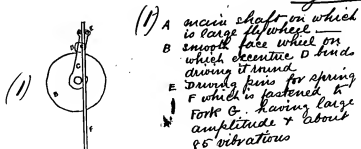 (1)
(1) A main shaft on which
is large flywheel
B smooth face wheel on
which excentric D binds
driving it round
E Driving pins for spring
F which is fastened to
Fork G. having large
amplitude & about
85 vibrations
B
F